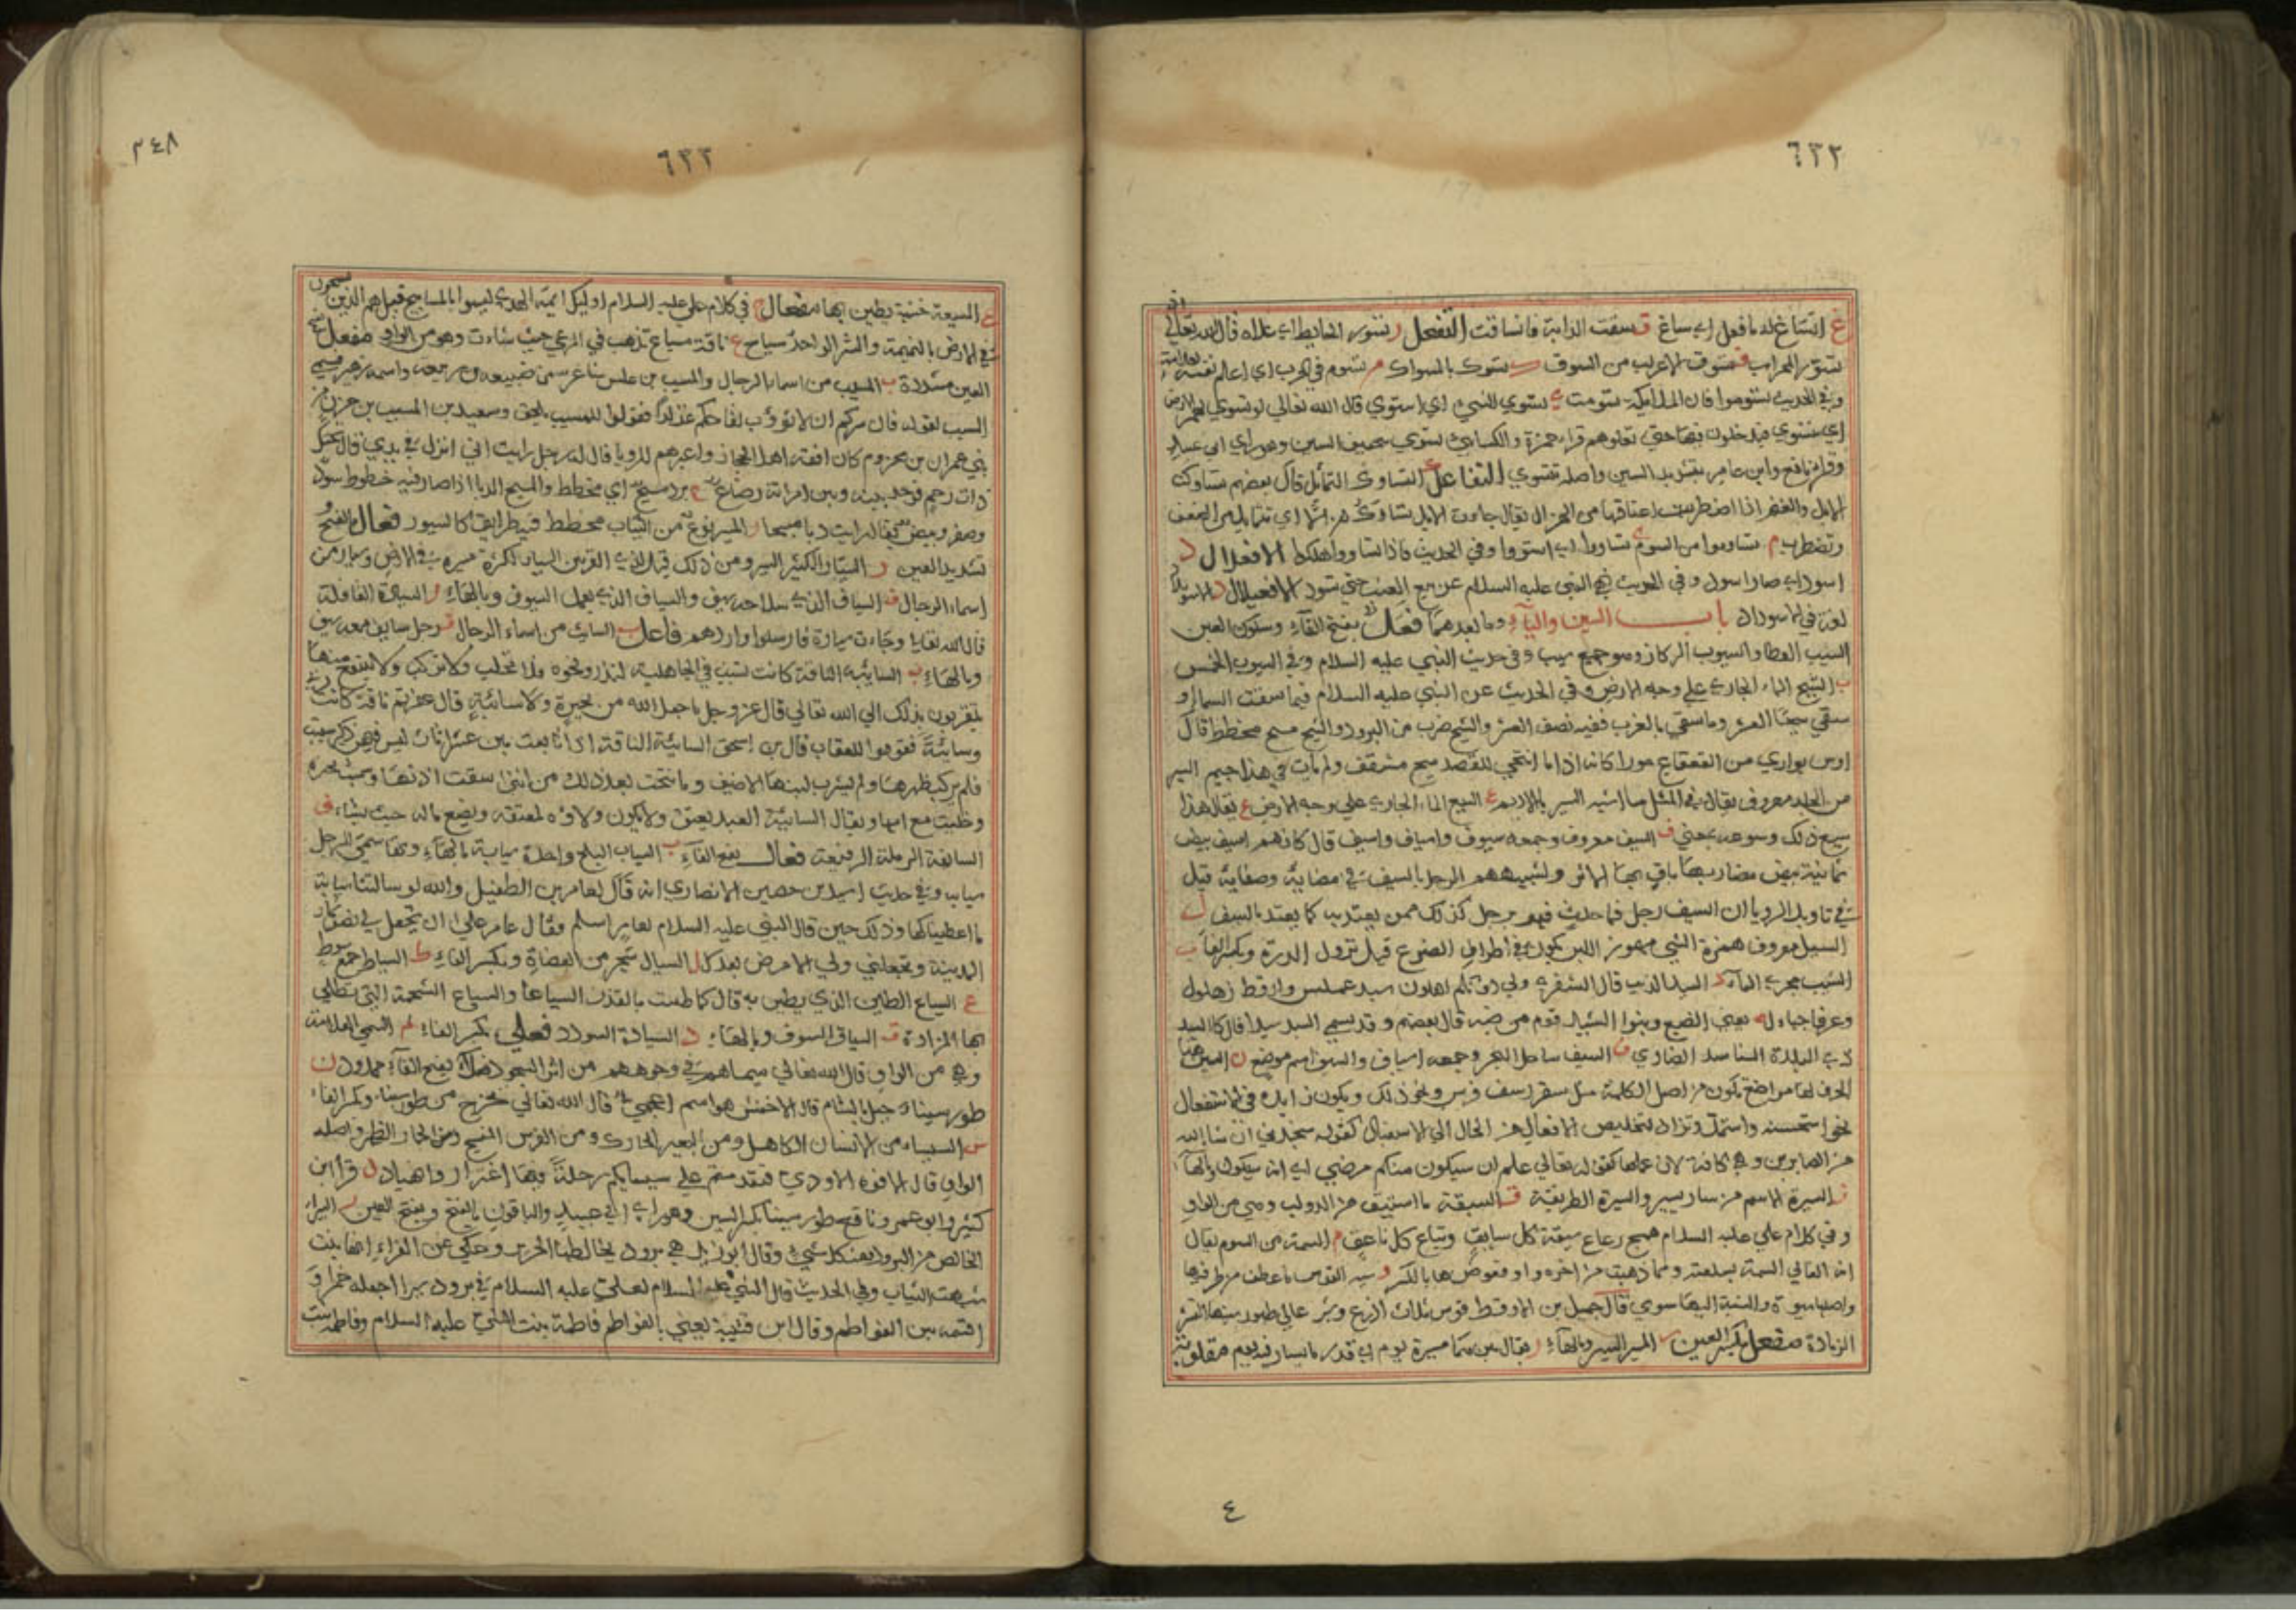 ٦٣٢
غ انساغ له ما فعل اي ساغ ق سقت الدابة فانساقت التفعل ر تسور الحايط اي علاه قال الله تعالى
تسوروا المحراب ق تسوق الاعراب من السوق ك تستوك بالسواك م تسوم في الحرب اي اعلم نفسه
وفي الحديث تسوموا فان الملايكة تسومت ي تسوي الشيء اي استوى قال الله تعالى لو تسوى بهم الارض
اي تستوي فيدخلون فيها حتى تعلوهم قراء حمزة والكسائي تسوى بتخفيف السين وهو راي ابي عبيد
وقراء نافع وابن عامر بتشديد السين واصله تتسوى التفاعل التساوك التمايل قال بعضهم تساوكت
الابل والغنم اذا اضطربت اعناقها من الهزال يقال جاءت الابل تساوك هزالا اي تتمايل من الضعف
وتضطرب م تساوموا من السوم ي تساووا اي استووا وفي الحديث فاذا تساووا هلكوا الافعلال د
اسود اي صار اسود وفي الحديث نهى النبي عليه السلام عن بيع العنب حتى يسود الافعيلال د الاسويداد
لغة في الاسوداد باب السين والياء وما بعدهما فعل بفتح الفاء وسكون العين
السيب العطا والسيوب الركاز وهو جمع سيب وفي حديث النبي عليه السلام وفي السيوب الخمس
السيح الماء الجاري على وجه الارض وفي الحديث عن النبي عليه السلام فيما سقت السماء او
سقي سيحا العشر وما سقي بالغرب ففيه نصف العشر والسيح ضرب من البرود والسيح مسح مخطط قال
اوس يواري من القعقاع مورا كانه اذا ما انتحى للقصد سيح مشرقف ولم يات في هذا جيم السير
من الجلد معروف يقال في المثل ما اشبه السير بالاديم ع السيع الماء الجاري على وجه الارض ع يقال هذا
سيع ذلك وسوعه بمعنى ف السيف معروف وجمعه سيوف واسياف واسيف قال كانهم اسيف بيض
يمانية بيض مضاربها باق بها الاثر ولتشبيههم الرجل بالسيف في مضايه وصفايه قيل
في تاويل الرويا ان السيف رجل فما حدث فيه فهو برجل كذلك ممن يعتد به كما يعتد بالسيف ل
السيل معروف همزة السيء مهموز اللبن يكون في اطراف الضرع قبل نزول الدرة وبكسر الفاء ب
السيب مجرى الماء د السيد الذيب قال الشنفرى ولي دونكم اهلون سيد عملس وارقط زهلول
وعرفاء جيال له يعني الضبع وبنوا السيد قوم من ضبة قال بعضهم وقد يسمى الاسد سيدا قال كالسيد
ذي اللبدة المستاسد الضاري ف السيف ساحل البحر وجمعه اسياف والسيف اسم موضع ن السين هذا
الحرف لها مواضع تكون من اصل الكلمة مثل سقر وسف وفرس ونحو ذلك ويكون زايدة في الاستفعال
نحو استحسنه واستمل وتزاد لتخليص الافعال من الحال الى الاستقبال كقوله ستجدني ان شا الله
من الصابرين وهي كافة لان عملها كقوله تعالى علم ان سيكون منكم مرضى اي انه سيكون بالهاء
ر السيرة الاسم من سار يسير والسيرة الطريقة ق السيقة ما استيق من الدواب وهي من الواو
وفي كلام علي عليه السلام همج رعاع سيقة كل سايق وتباع كل ناعق م السمة من السوم يقال
انه الغالي السيمة بسلعته ومما ذهبت من اخره واو فعوض هاء بالكسر و سية القوس ما عطف من طرفيها
واصلها سيوة والنسبة اليها سوي قال جميل بن الارقط قوس ثلاث اذرع وشبر
الزيادة مفعل بكسر العين ر المسير السير وبالهاء ر يقال بينهما مسيرة يوم اي قدر ما يسار فيه يوم مقلوبة
٤
٦٣٣
٣٤٨
ع المسيعة خشبة يطين بها مفعال ح في كلام علي عليه السلام اوليك ايمة الهدى ليسوا بالمساييح قيل هم الذين يسيحون
في الارض بالنميمة والشر الواحد مسياح ع ناقة مسياع تذهب في المرعى حيث شاءت وهو من الواو مفعل بفتح
العين مشددة ب المسيب من اسماء الرجال والمسيب بن علس شاعر من ضبيعة بن ربيعة واسمه زهير سمي
المسيب لقوله فان سركم ان لا تؤوب لقاحكم غزارا فقولوا للمسيب يلحق وسعيد بن المسيب بن حزن من
بني عمران بن مخزوم كان افقه اهل الحجاز واعبرهم للرويا قال له رجل رايت اني ابول في يدي قال تحتك
ذات رحم فوجد بينه وبين امرانه رضاع ح برد مسيح اي مخطط والمسيح الدبا اذا صار فيه خطوط سود
وصفر وبيض يقال رايت دبا مسيحا ر المسير نوع من الثياب مخطط فيه طرايق كالسيور فعال بفتح
تشديد العين ر السيار الكثير السير ومن ذلك قيل لذي القرنين السيار لكثرة سيره في الارض وسيار من
اسماء الرجال ف السياف الذي سلاحه سيف والسياف الذي يعمل السيوف وبالهاء ر السيارة القافلة
قال الله تعالى وجاءت سيارة فارسلوا واردهم فاعل ب السايب من اسماء الرجال ف رجل سايف معه سيف
وبالهاء ب السايبة الناقة كانت تسيب في الجاهلية لنذر ونحوه فلا تحلب ولا تركب ولا ينتفع منها
يتقربون بذلك الى الله تعالى قال عز وجل ما جعل الله من بحيرة ولا سائبة قال عقرتم ناقة كانت
وسائبة فقوموا للعقاب قال ابن اسحق السائبة الناقة اذا تابعت بين عشر اناث ليس فيهن ذكر سيبت
فلم يركب ظهرها ولم يشرب لبنها الا ضيف وما نتجت بعد ذلك من انثى شقت اذنها وسميت بحيرة
وخليت مع امها ويقال السائبة العبد يعتق ولا يكون ولاؤه لمعتقه ويضع ماله حيث يشاء ف
السايفة الرملة الرقيقة فعال بفتح الفاء ب السياب البلح واحدة سيابة بالهاء وبها سمي الرجل
سيابه وفي حديث اسيد بن حصين الانصاري انه قال لعامر بن الطفيل والله لو سالتنا سيابة
ما اعطيناكها وذلك حين قال النبي عليه السلام لعامر اسلم فقال عامر على ان تجعل لي نصف ثمار
المدينة وتجعلني ولي الامر من بعدك ل السيال شجر من العضاة وبكسر الفاء ط السياط جمع سوط
ع السياع الطين الذي يطين به قال كما طينت بالفدن السياعا والسياع الشحمة التي تطلى
بها المزادة ق السياق السوق وبالهاء د السيادة السودد فعلى بكسر الفاء م السيمى العلامة
وهي من الواو قال الله تعالى سيماهم في وجوههم من اثر السجود فعلاء بفتح الفاء ممدود ن
طور سيناء جبل بالشام قال الاخفش هو اسم اعجمي قال الله تعالى تخرج من طور سيناء وبكسر الفاء
س السيساء من الانسان الكاهل ومن البعير الحارك ومن الفرس المنسج ومن الحمار الظهر واصله
الواو قال الافوه الاودي فقدمتم على سيسايكم رحلة بها اغترار واهيا ن قرأ ابن
كثير وابو عمرو ونافع طور سيناء بكسر السين وهو راي ابي عبيد والباقون بالفتح وبفتح العين ر السيراء
الخالص من البرود بعينه كل شيء وقال ابو زيد هي برود يخالطها الحرير وحكي عن الفراء انها نبت
شبهت الثياب وفي الحديث قال النبي عليه السلام لعلي عليه السلام في برود سيرا اجعله خمرا و
اقتسمه بين الفواطم وقال ابن قتيبة يعني بالفواطم فاطمة بنت النبي عليه السلام وفاطمة بنت